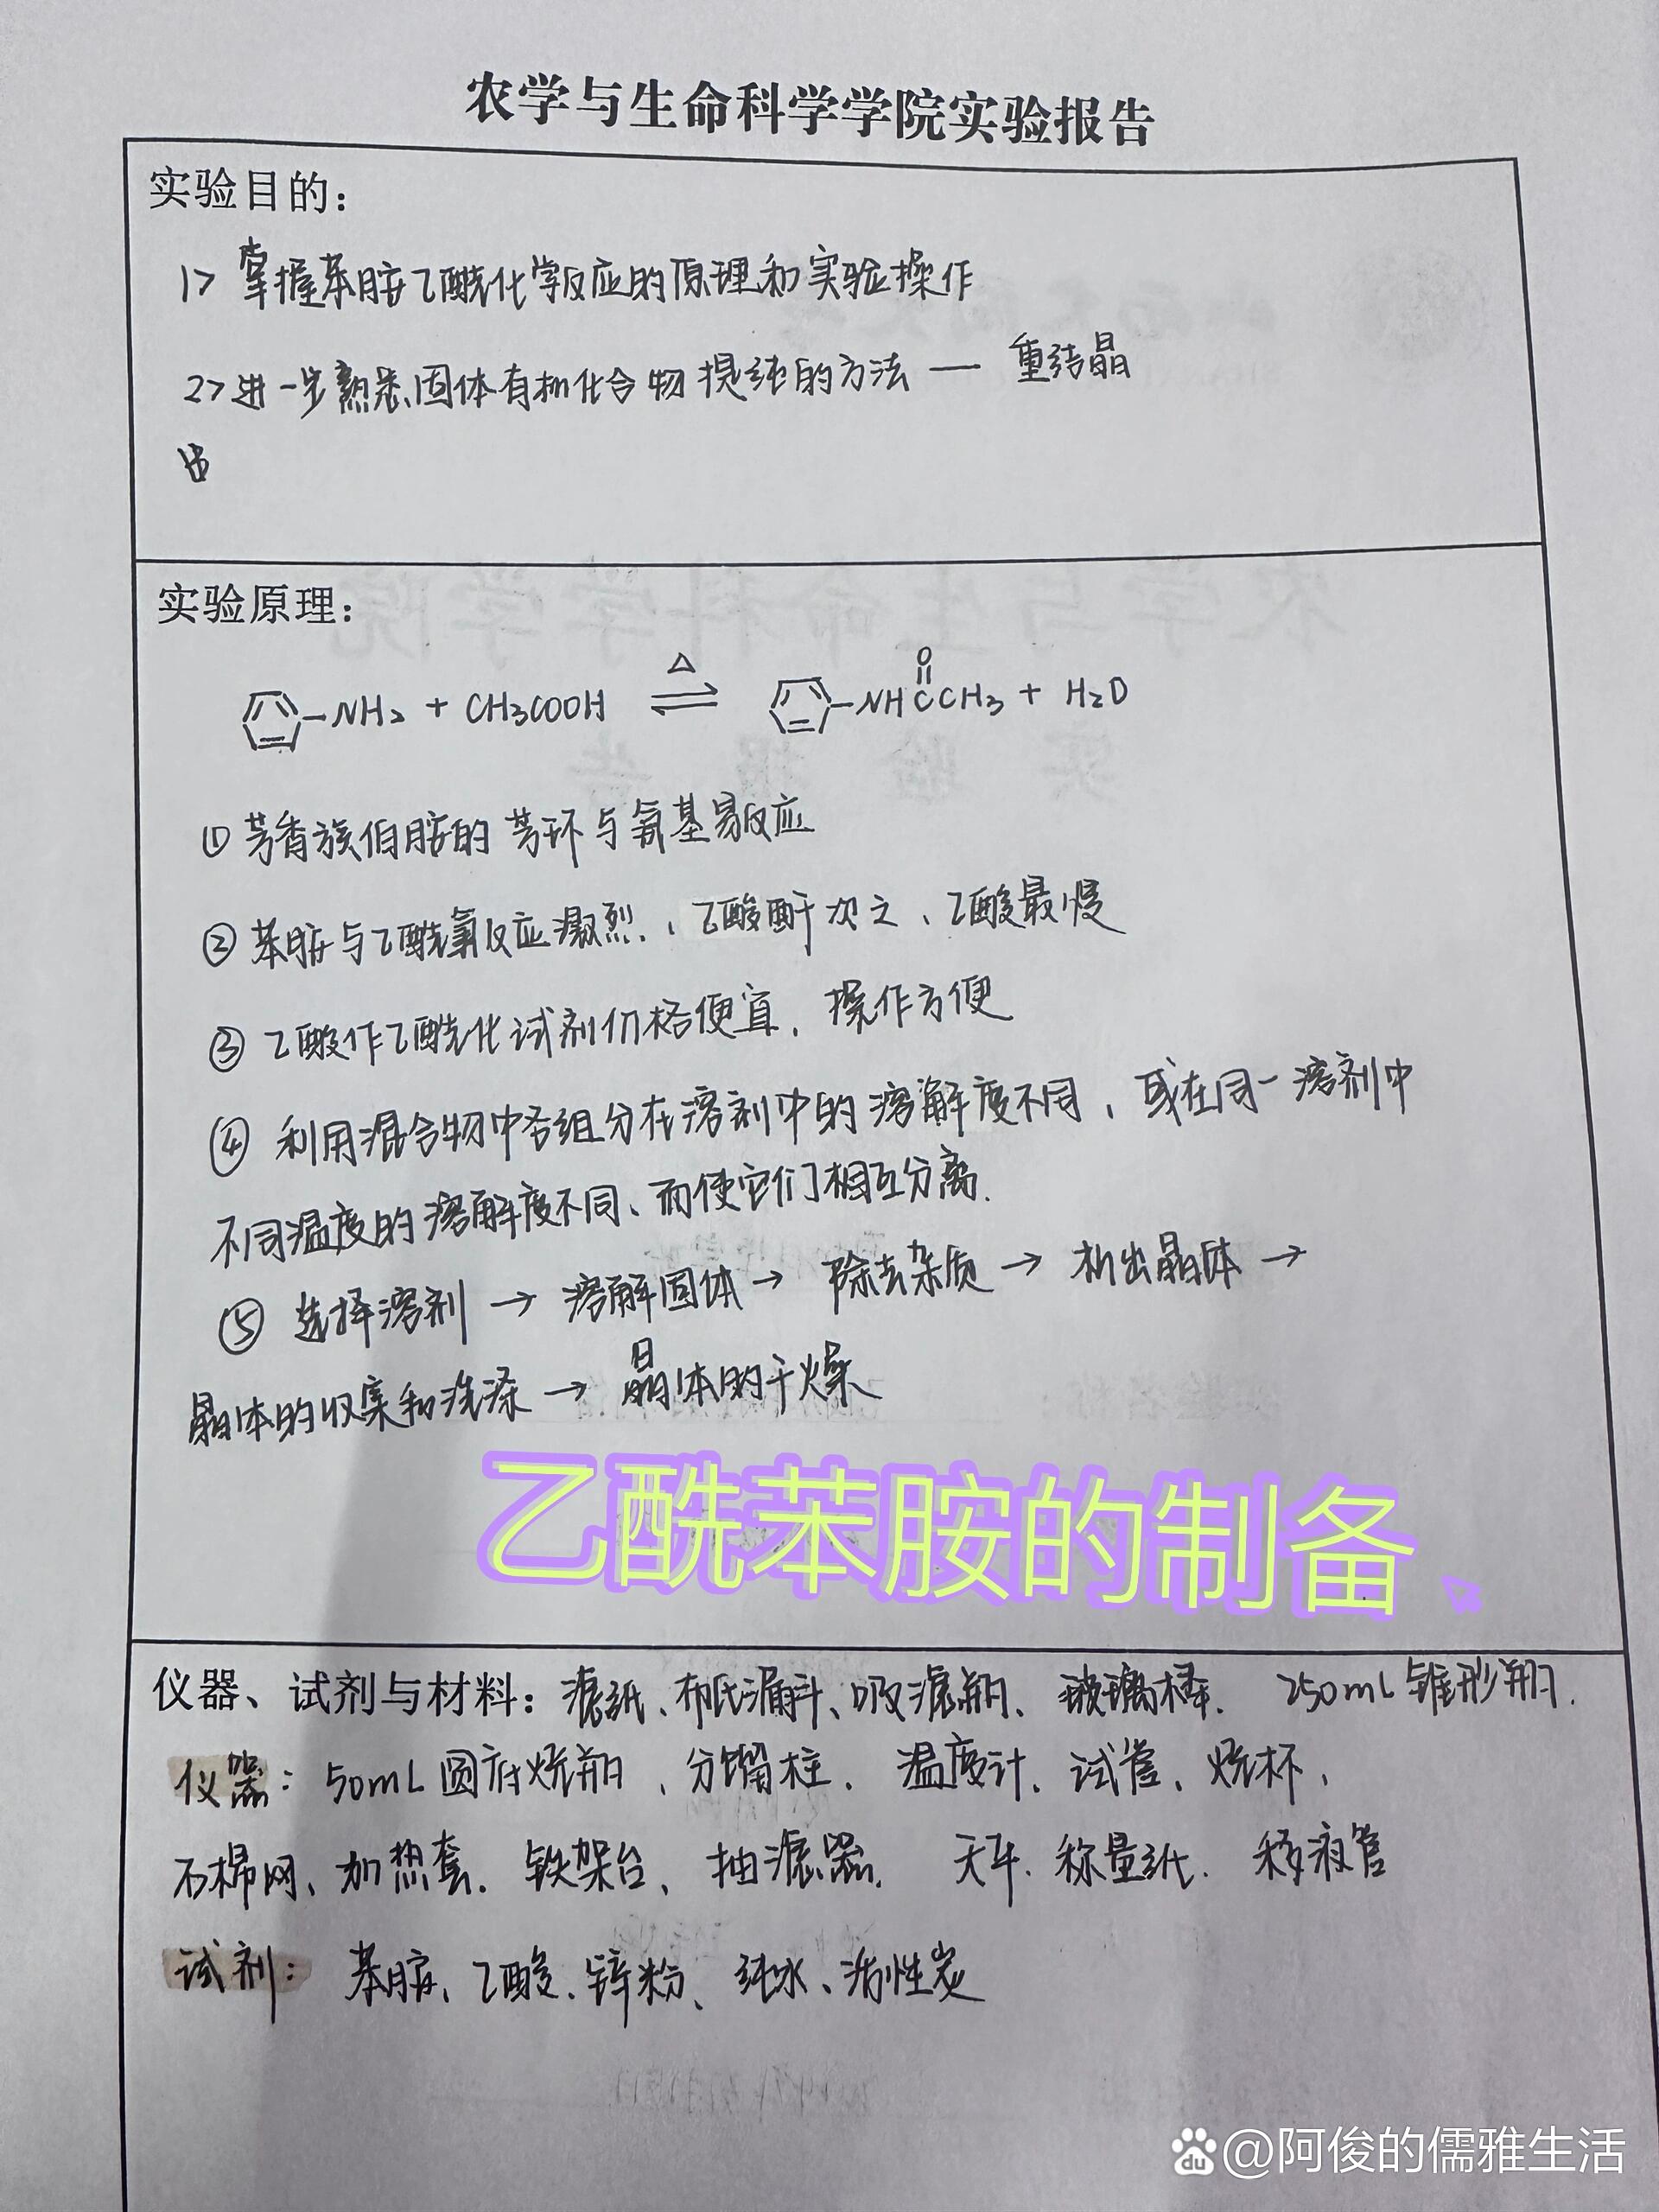 农学与生命科学学院实验报告
实验目的：
1> 掌握苯胺乙酰化学反应的原理和实验操作
2> 进一步熟悉固体有机化合物提纯的方法 — 重结晶
实验原理：
-NH2 + CH3COOH ⇌ △ -NHCCH3 + H2O
O
① 芳香族伯胺的芳环与氨基易反应
② 苯胺与乙酰氯反应激烈、乙酸酐次之、乙酸最慢
③ 乙酸作乙酰化试剂价格便宜、操作方便
④ 利用混合物中各组分在溶剂中的溶解度不同，或在同一溶剂中
不同温度的溶解度不同、而使它们相互分离.
⑤ 选择溶剂 → 溶解固体 → 除去杂质 → 析出晶体 →
晶体的收集和洗涤 → 晶体的干燥
乙酰苯胺的制备
仪器、试剂与材料：滤纸、布氏漏斗、吸滤瓶、玻璃棒. 250mL锥形瓶.
仪器：50mL圆底烧瓶、分馏柱、温度计、试管、烧杯、
石棉网、加热套. 铁架台、抽滤器. 天平. 称量纸. 移液管
试剂：苯胺、乙酸. 锌粉、纯水、活性炭
du @阿俊的儒雅生活